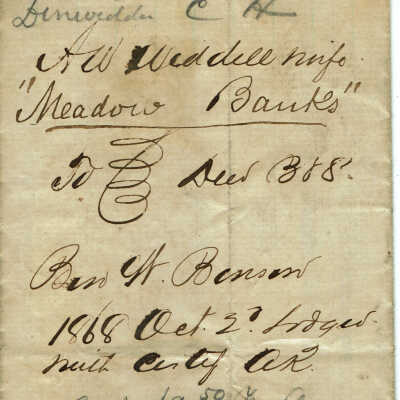 Dinwiddie C H
A W Weddell & wife
"Meadow Banks"
To Deed B & S
Ben W. Benson
1868 Oct. 2d Lodged
with Certif